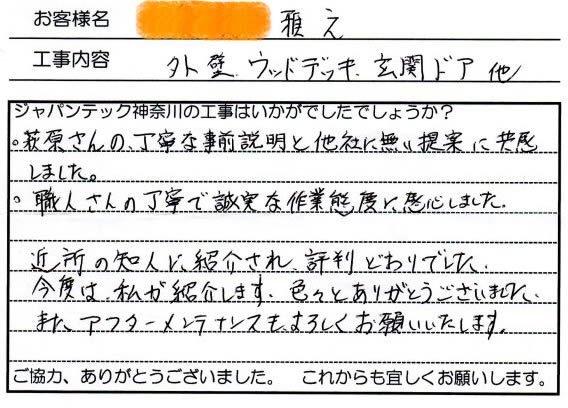 お客様名 雅え
工事内容 外壁、ウッドデッキ、玄関ドア他
ジャパンテック神奈川の工事はいかがでしたでしょうか?
。萩原さんの、丁寧な事前説明と他社に無い提案に共感
しました。
。職人さんの丁寧で誠実な作業態度に感心しました。
近所の知人に、紹介され、評判どおりでした。
今度は、私が紹介します、色々とありがとうございました。
また、アフターメンテナンスも、よろしくお願いいたします。
ご協力、ありがとうございました。 これからも宜しくお願いします。